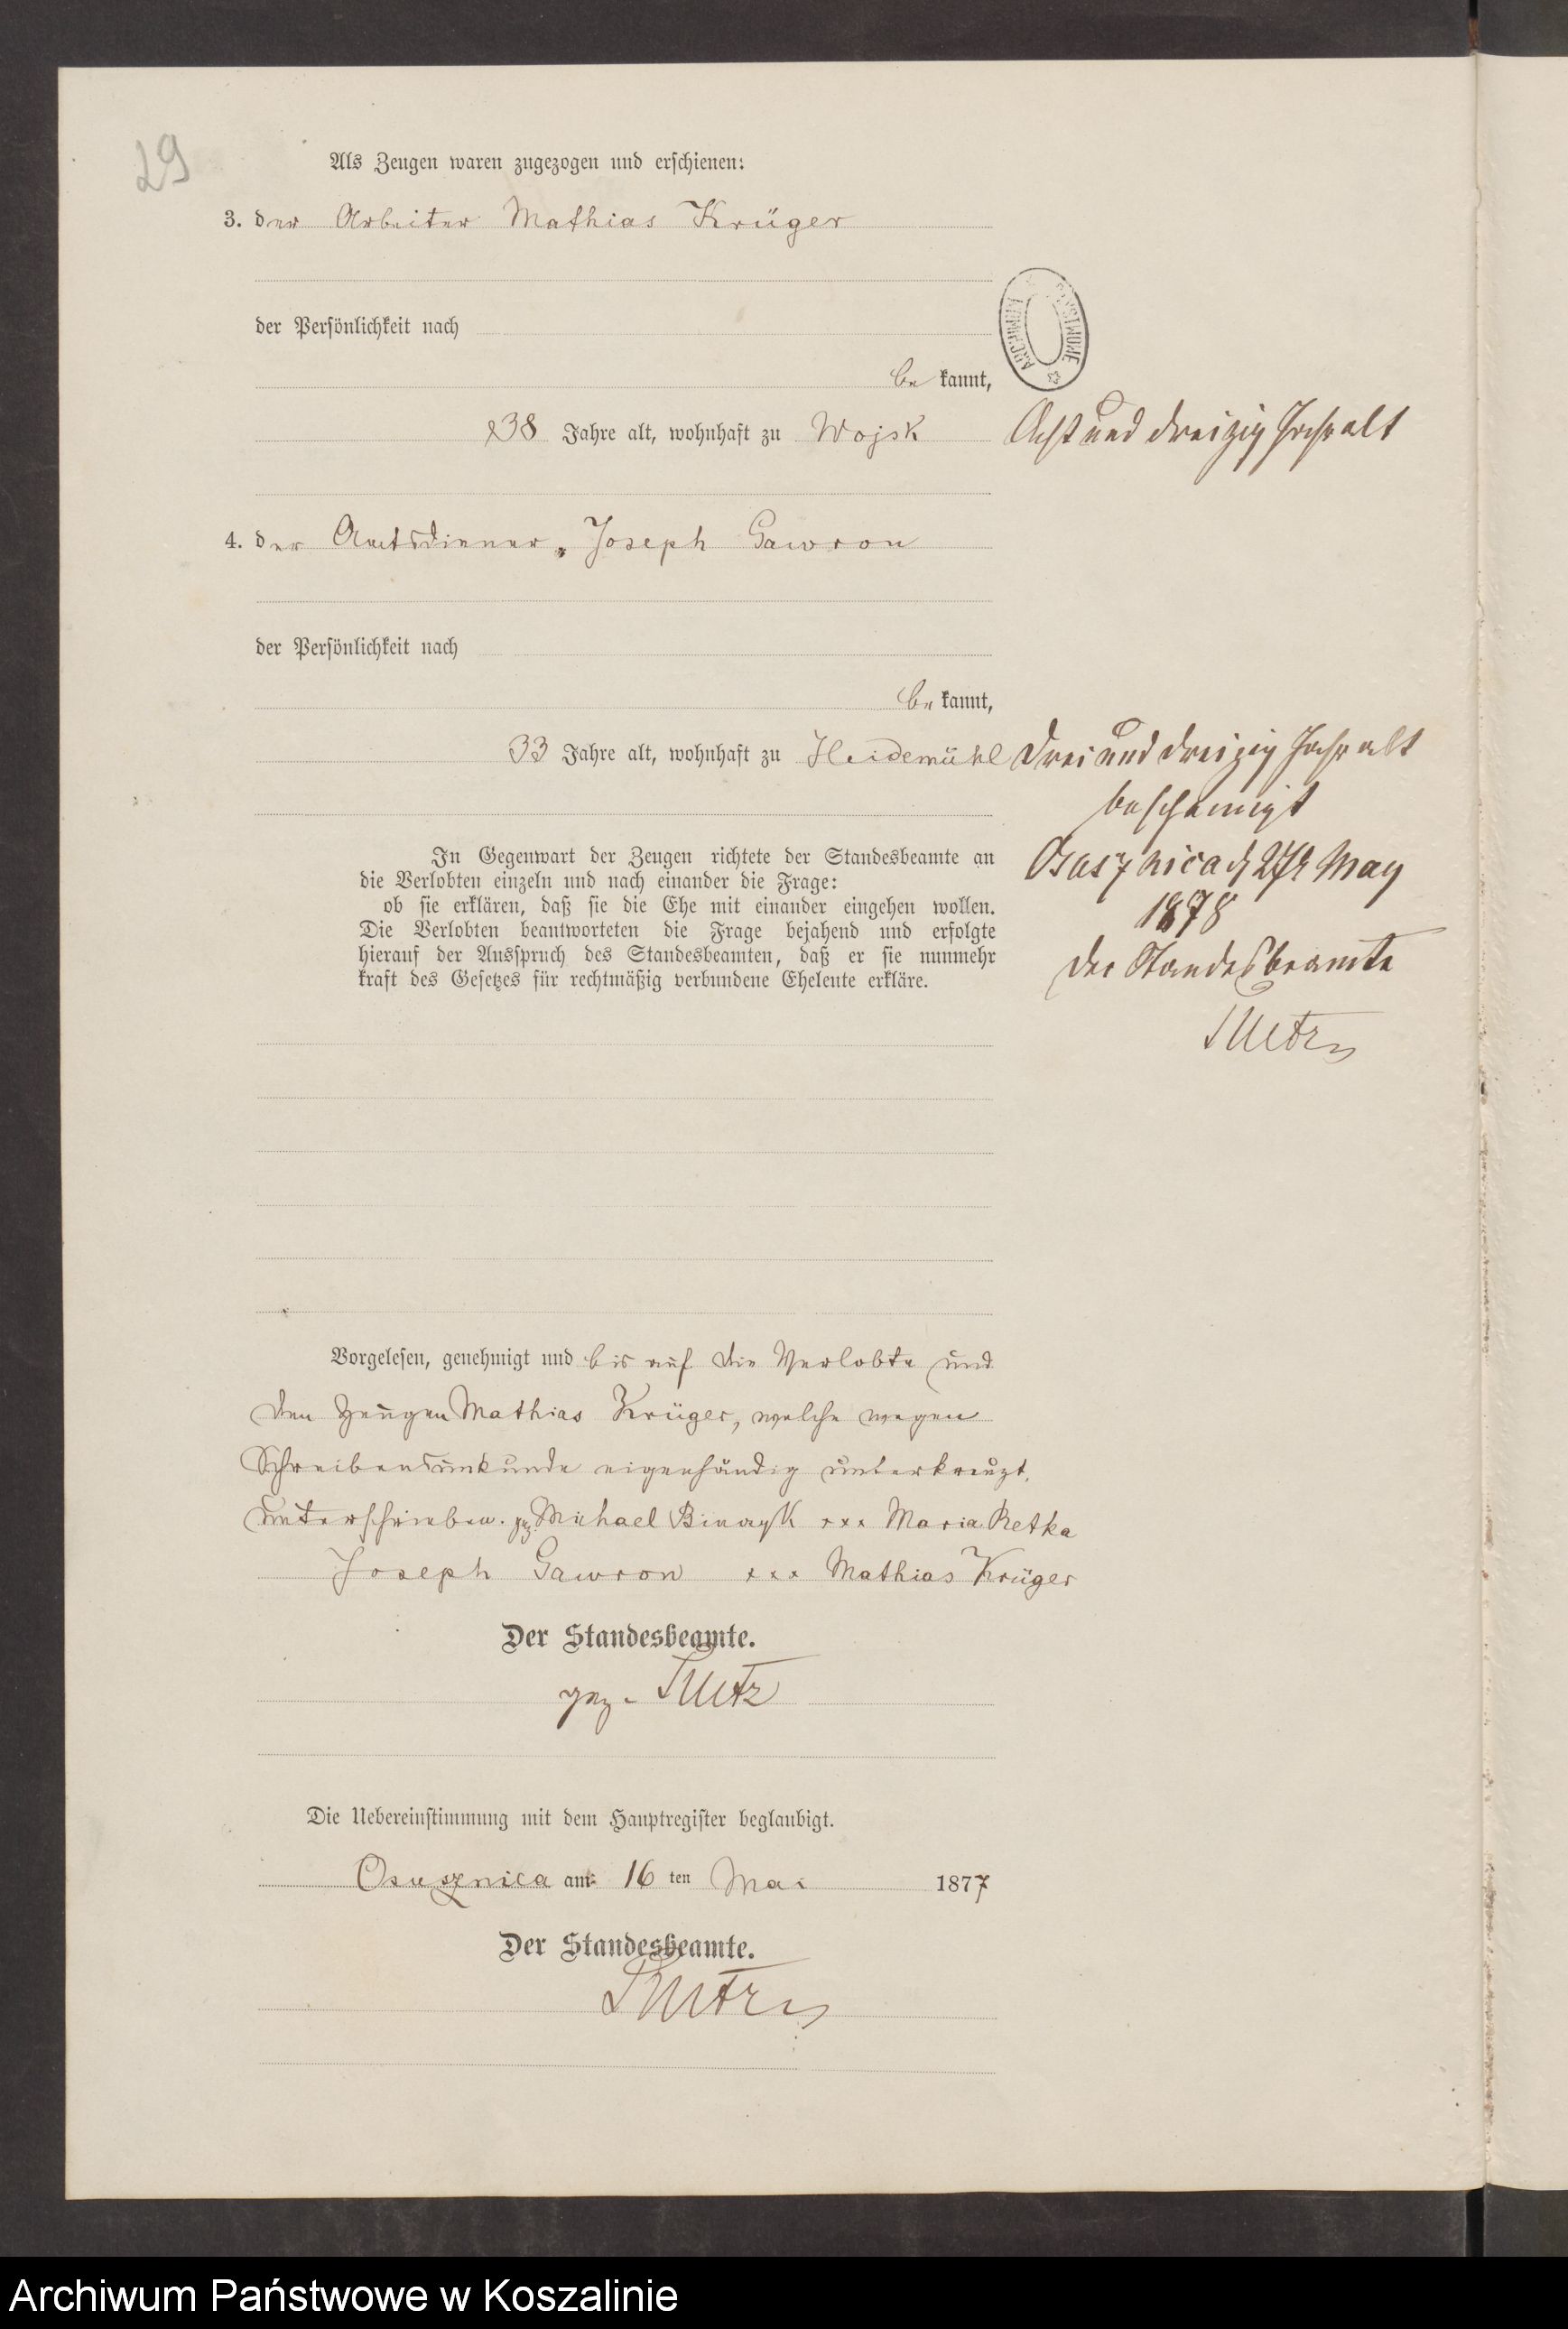 29
Als Zeugen waren zugezogen und erschienen:
3. der Arbeiter Mathias Krüger
der Persönlichkeit nach
be kannt,
38 Jahre alt, wohnhaft zu Wojsk
Acht und dreizig Jahr alt
ARCHIWUM PAŃSTWOWE
4. der Amtsdiener Joseph Gawron
der Persönlichkeit nach
be kannt,
33 Jahre alt, wohnhaft zu Heidemühl
Drei und dreizig Jahr alt
bescheinigt
May
1878
Der Standesbeamte
In Gegenwart der Zeugen richtete der Standesbeamte an
die Verlobten einzeln und nach einander die Frage:
ob sie erklären, daß sie die Ehe mit einander eingehen wollen.
Die Verlobten beantworteten die Frage bejahend und erfolgte
hierauf der Ausspruch des Standesbeamten, daß er sie nunmehr
kraft des Gesetzes für rechtmäßig verbundene Eheleute erkläre.
Vorgelesen, genehmigt und bis auf die Verlobte und
den Zeugen Mathias Krüger, welche wegen
Schreibensunkunde eigenhändig unterkreuzt,
unterschrieben. gez. Michael xxx Maria Retka
Joseph Gawron xxx Mathias Krüger
Der Standesbeamte.
gez.
Die Uebereinstimmung mit dem Hauptregister beglaubigt.
Osusznica am 16 ten Mai 1877
Der Standesbeamte.
Archiwum Państwowe w Koszalinie